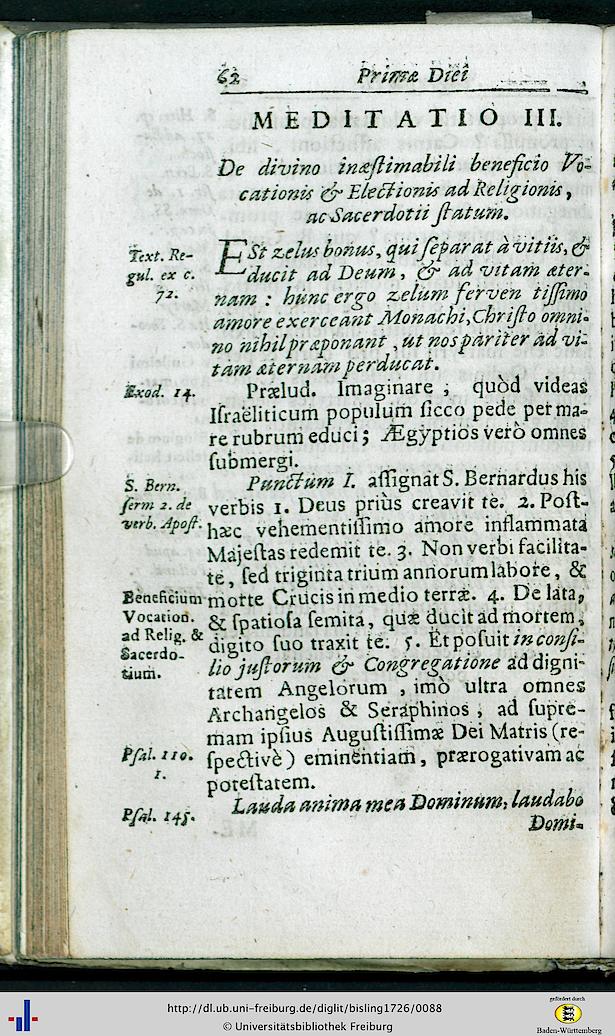 62 Primæ Diei
MEDITATIO III.
De divino inæſtimabili beneficio Vo-
cationis & Electionis ad Religionis,
ac Sacerdotii ſtatum.
Text. Re-
gul. ex c.
72.
ESt zelus bonus, qui ſeparat à vitiis, &
ducit ad Deum, & ad vitam æter-
nam : hunc ergo zelum ferven tiſſimo
amore exerceant Monachi, Chriſto omni-
no nihil præponant, ut nos pariter ad vi-
tam æternam perducat.
Exod. 14.
Prælud. Imaginare, quòd videas
Iſraëliticum populum ſicco pede per ma-
re rubrum educi; Ægyptios verò omnes
ſubmergi.
S. Bern.
ſerm 2. de
verb. Apoſt.
Punctum I. aſſignat S. Bernardus his
verbis 1. Deus priùs creavit te. 2. Poſt-
hæc vehementiſſimo amore inflammata
Majeſtas redemit te. 3. Non verbi facilita-
te, ſed triginta trium annorum labore, &
morte Crucis in medio terræ. 4. De lata,
& ſpatioſa ſemita, quæ ducit ad mortem,
digito ſuo traxit te. 5. Et poſuit in conſi-
lio juſtorum & Congregatione ad digni-
tatem Angelorum, imò ultra omnes
Archangelos & Seraphinos, ad ſupre-
mam ipſius Auguſtiſſimæ Dei Matris (re-
ſpectivè) eminentiam, prærogativam ac
poteſtatem.
Beneficium
Vocation.
ad Relig. &
Sacerdo-
tium.
Pſal. 110.
1.
Pſal. 145.
Lauda anima mea Dominum, laudabo
Domi-
http://dl.ub.uni-freiburg.de/diglit/bisling1726/0088
© Universitätsbibliothek Freiburg
gefördert durch
Baden-Württemberg